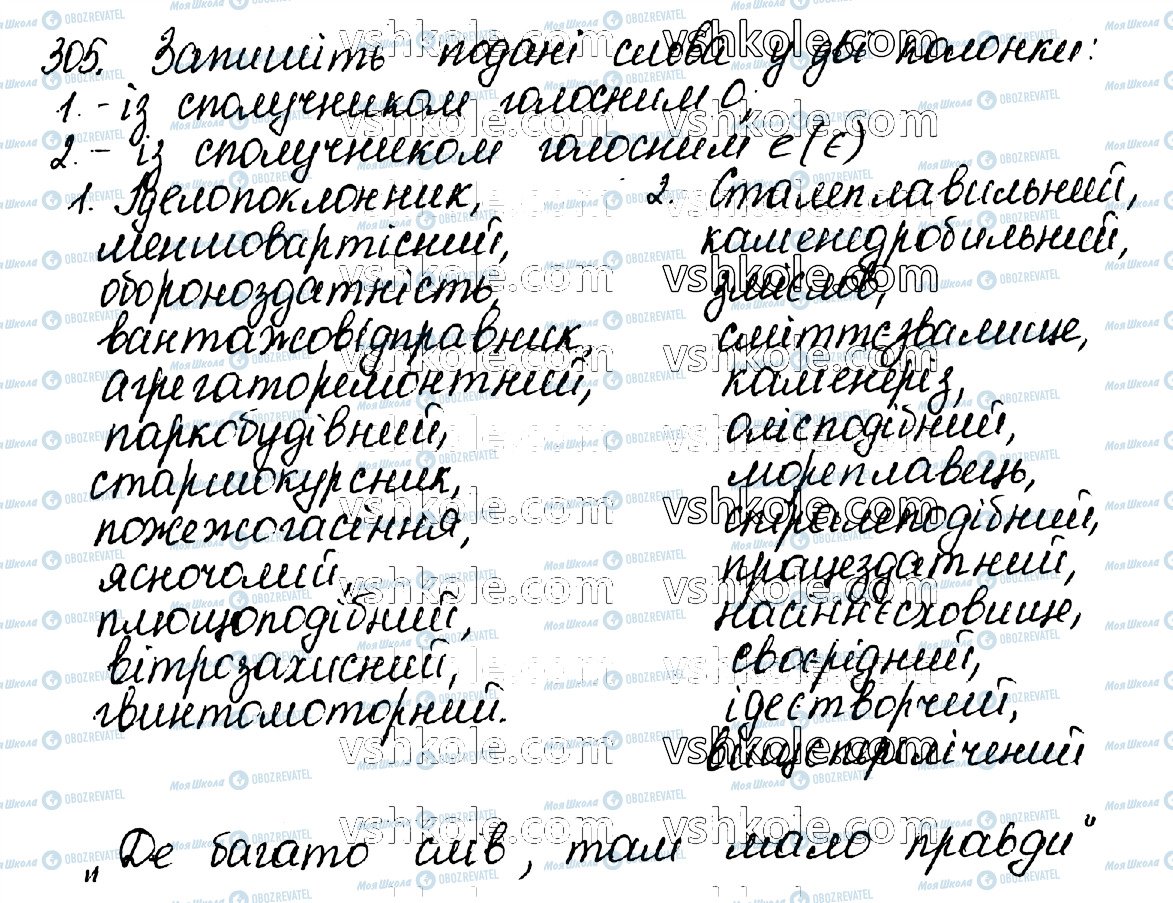 305. Запишіть подані слова у дві колонки:
1. - із сполучником голосним о;
2. - із сполучником голосним е (є)
1. Ідолопоклонник,
меншовартісний,
обороноздатність,
вантажовідправник,
агрегаторемонтний,
паркобудівний,
старшокурсник,
пожежогасіння,
ясночолий,
площоподібний,
вітрозахисний,
гвинтомоторний.
2. Сталеплавильний,
каменедробильний,
сміттєзвалище,
каменеріз,
мореплавець,
спіралеподібний,
працездатний,
насіннєсховище,
своєрідний,
ідеєтворчий,
вищеперелічений
„Де багато слів, там мало правди"